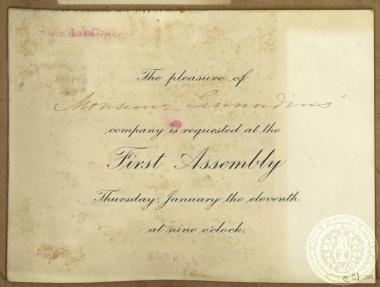 The pleasure of
Monsieur
company is requested at the
First Assembly
Thursday, January the eleventh.
at nine o'clock.